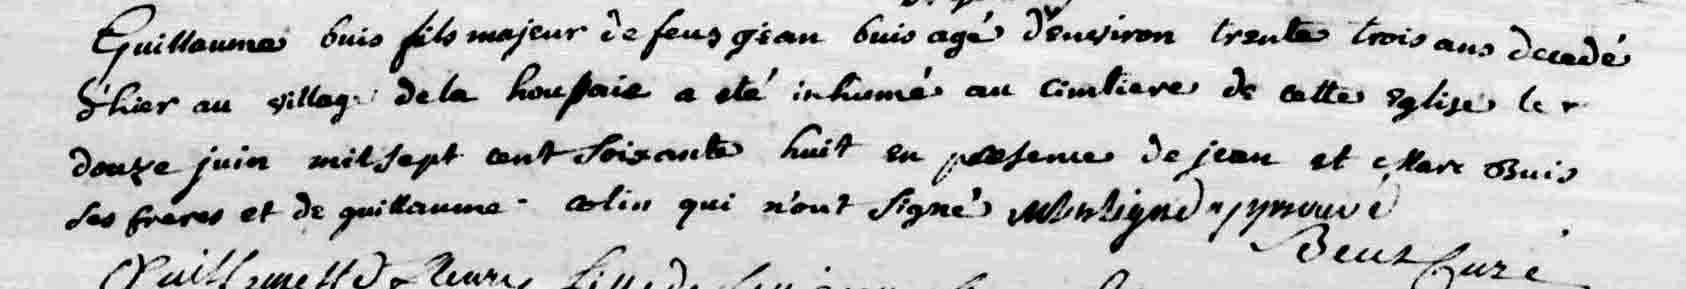 Guillaume buis fils majeur de feus gean buis agé d'environ trente trois ans decedé
d'hier au village de la houssaie a eté inhumé au cimtiere de cette eglise le
douze juin mil sept cent soixante huit en presence de jean et Marc Buis
ses freres et de guillaume colin qui n'ont signé interligne approuvé
curé
fille de